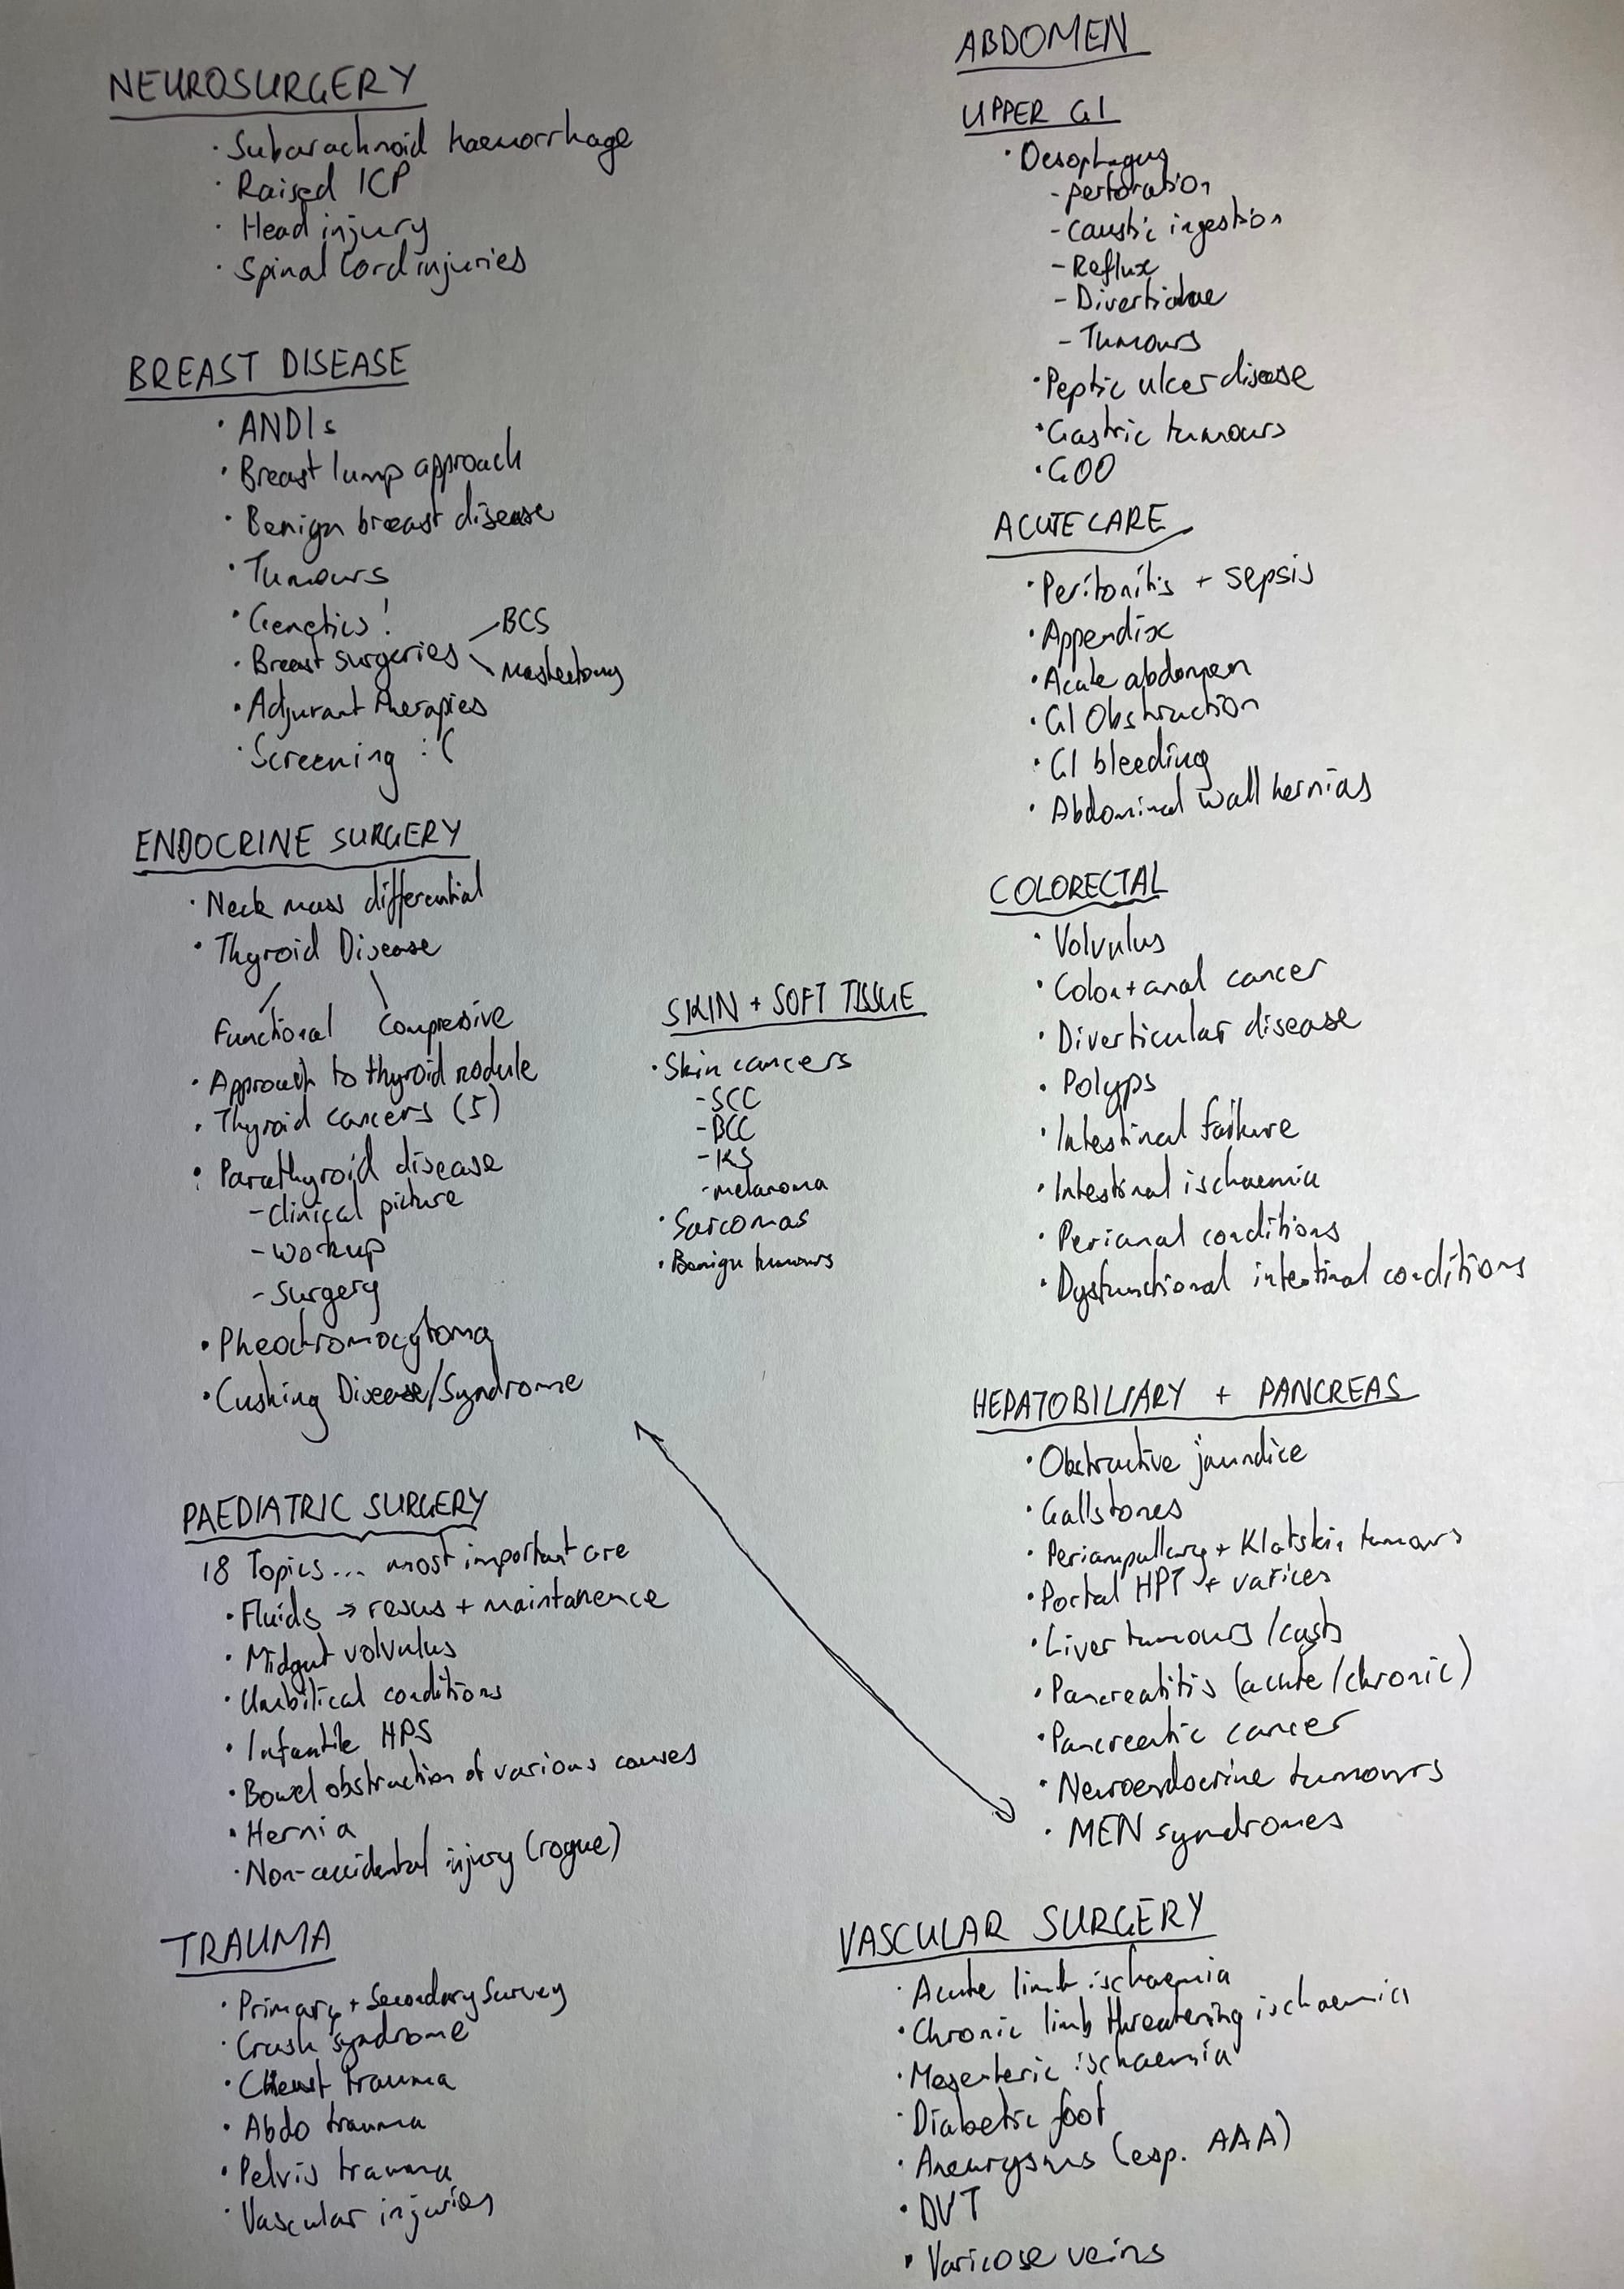 NEUROSURGERY
· Subarachnoid haemorrhage
· Raised ICP
· Head injury
· Spinal Cord injuries
BREAST DISEASE
· ANDIs
· Breast lump approach
· Benign breast disease
· Tumours
· Genetics!
· Breast surgeries
BCS
Mastectomy
· Adjuvant therapies
· Screening :(
ENDOCRINE SURGERY
· Neck mass differential
· Thyroid Disease
Functional Compressive
· Approach to thyroid nodule
· Thyroid cancers (5)
· Parathyroid disease
- Clinical picture
- Workup
- Surgery
· Pheochromocytoma
· Cushing Disease/Syndrome
PAEDIATRIC SURGERY
18 Topics... most important are
· Fluids → resus + maintanence
· Midgut volvulus
· Umbilical conditions
· Infantile HPS
· Bowel obstruction of various causes
· Hernia
· Non-accidental injury (rogue)
TRAUMA
· Primary + Secondary Survey
· Crush syndrome
· Chest trauma
· Abdo trauma
· Pelvis trauma
· Vascular injuries
SKIN + SOFT TISSUE
· Skin cancers
- SCC
- BCC
- KS
- melanoma
· Sarcomas
· Benign tumours
ABDOMEN
UPPER GI
· Oesophagus
- perforation
- Caustic ingestion
- Reflux
- Tumours
· Peptic ulcer disease
· Gastric tumours
· GOO
ACUTE CARE
· Peritonitis + sepsis
· Appendix
· Acute abdomen
· GI Obstruction
· GI bleeding
· Abdominal wall hernias
COLORECTAL
· Volvulus
· Colon + anal cancer
· Diverticular disease
· Polyps
· Intestinal failure
· Intestinal ischaemia
· Perianal conditions
· Dysfunctional intestinal conditions
HEPATOBILIARY + PANCREAS
· Obstructive jaundice
· Gallstones
· Periampullary + Klatskin tumours
· Portal HPT + varices
· Liver tumours / cysts
· Pancreatitis (acute / chronic)
· Pancreatic cancer
· Neuroendocrine tumours
· MEN syndromes
VASCULAR SURGERY
· Acute limb ischaemia
· Chronic limb threatening ischaemia
· Mesenteric ischaemia
· Diabetic foot
· Aneurysms (esp. AAA)
· DVT
· Varicose veins